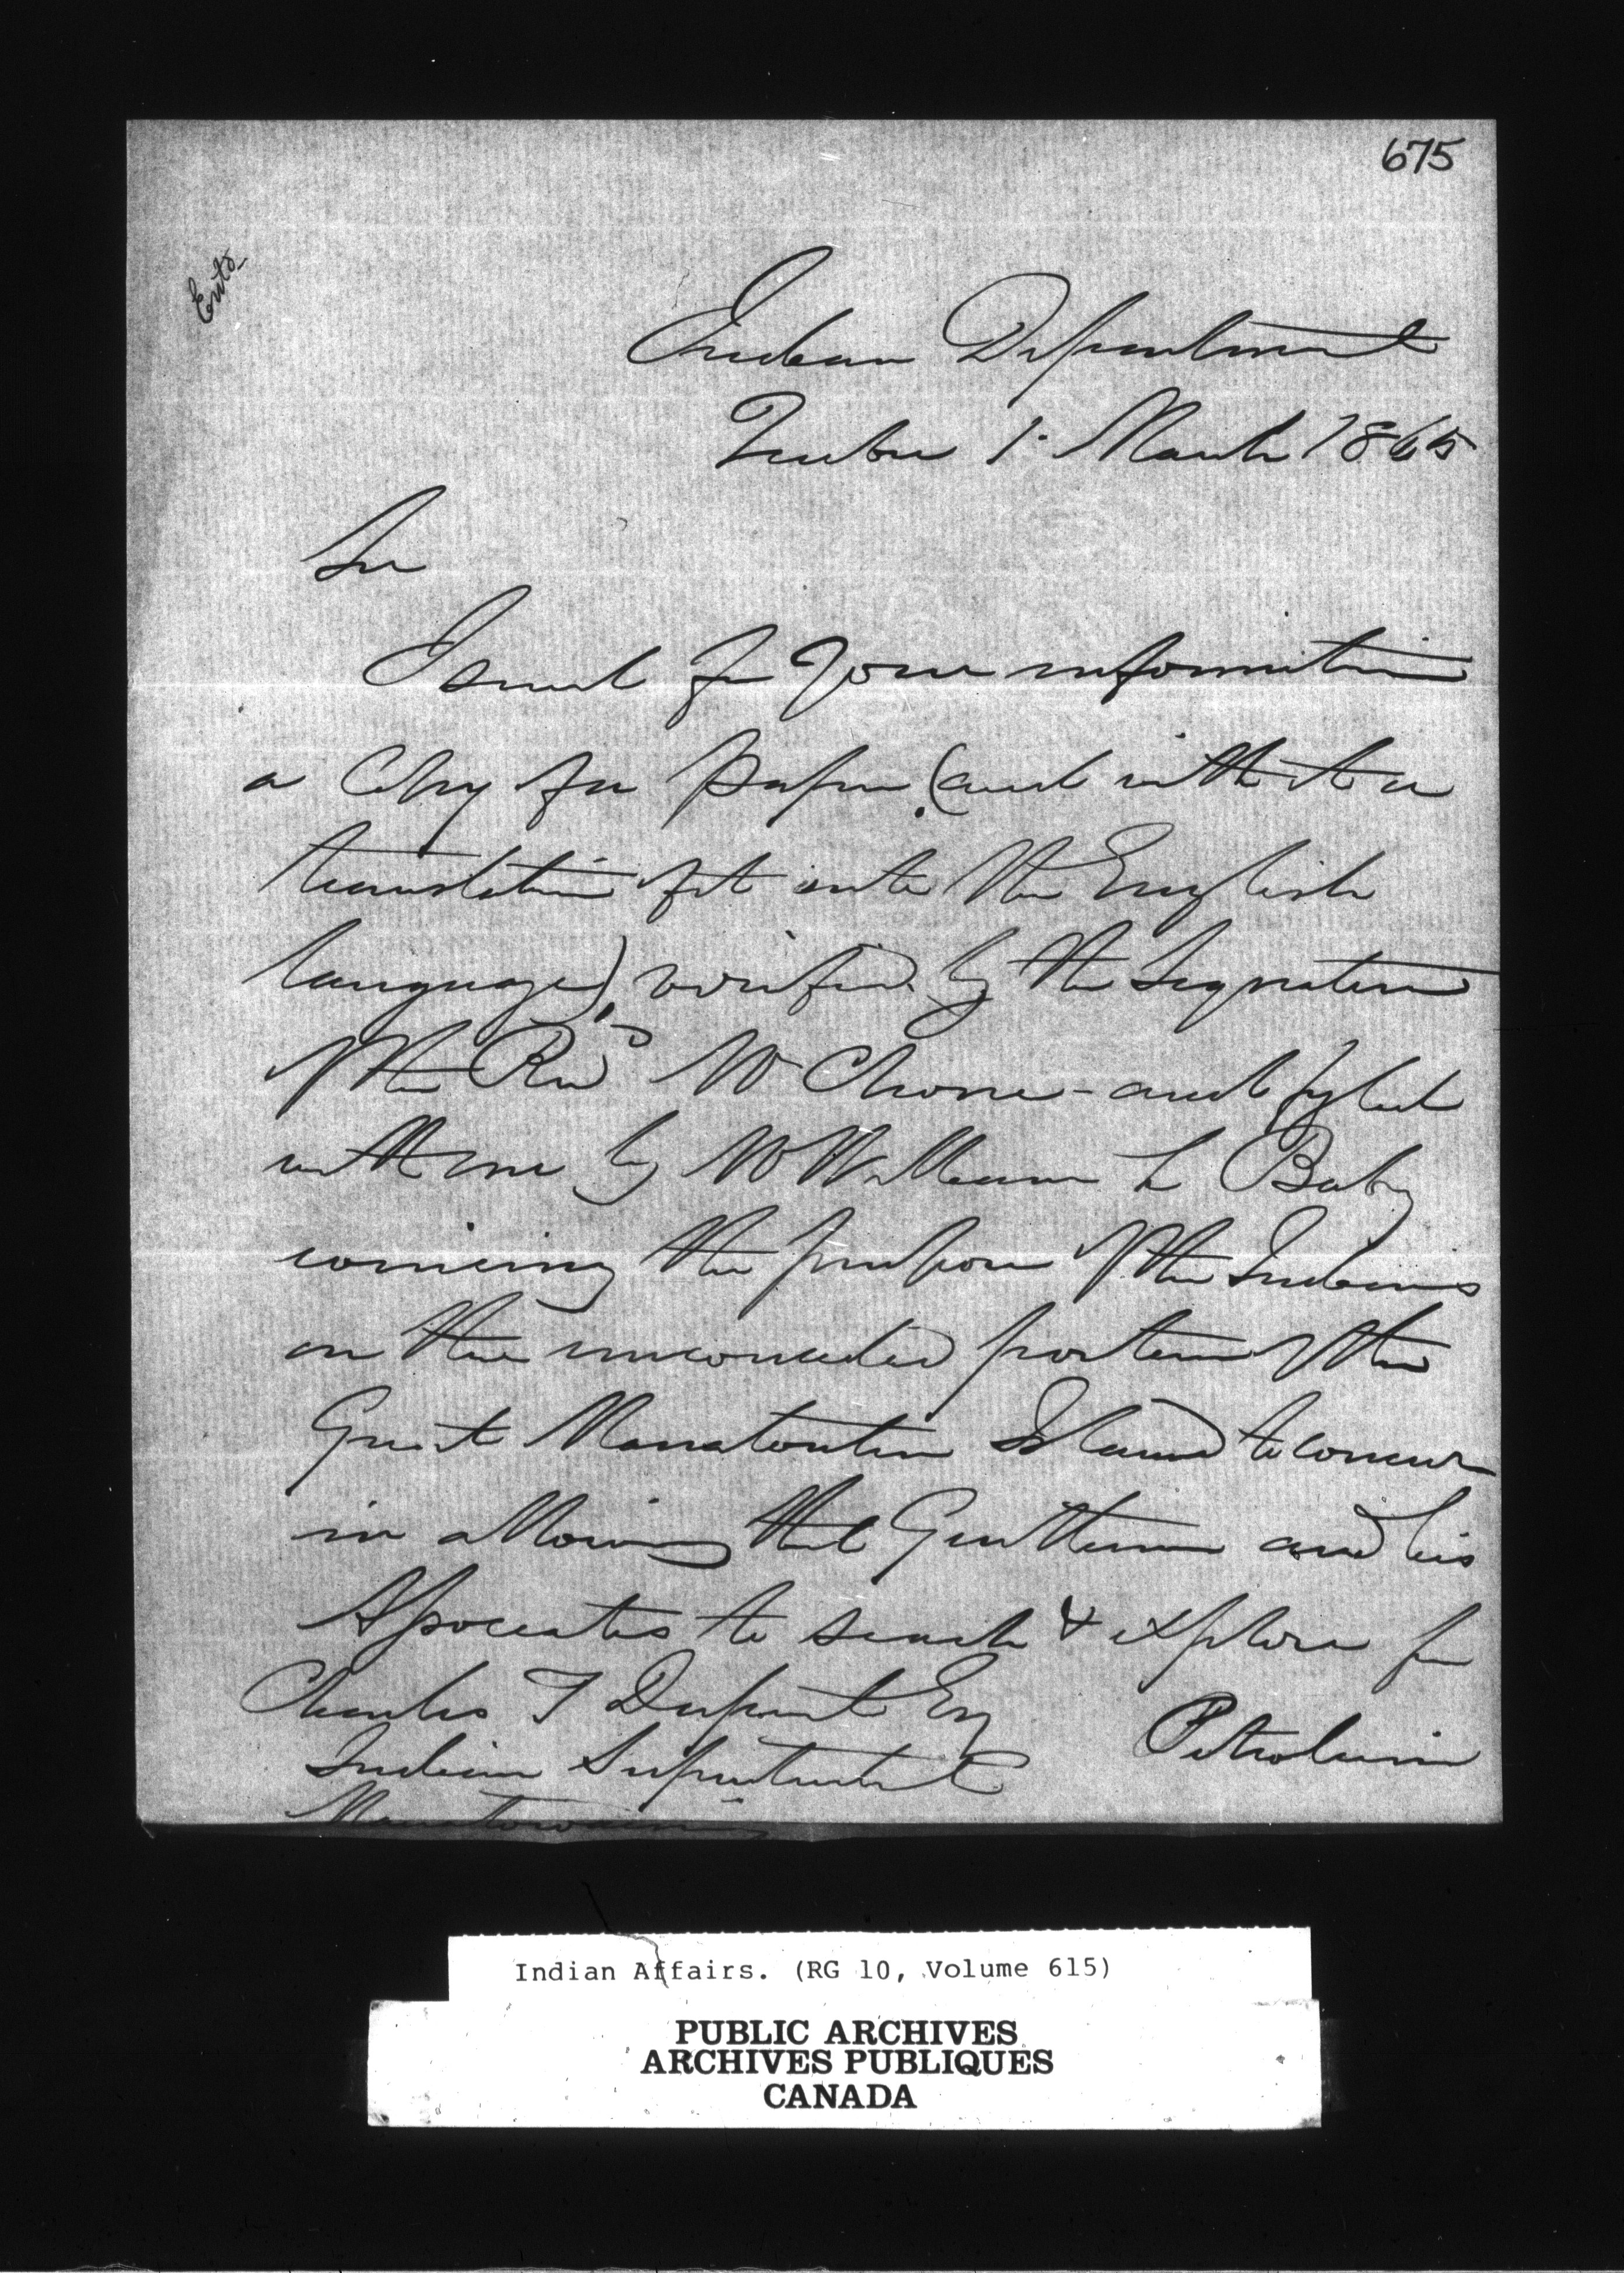 675
Entd
Indian Department
Quebec 1. March 1865
Sir
I send for your information
a Copy of a paper (and with it a
translation of it into the English
language), verified by the Signature
of the Revd Mr Chone - and fyled
with me by Mr William L Baby
conveying the purpose of the Indians
on the unconceded portion of the
Great Manatoulin Island to concur
in allowing that Gentleman and his
Associates to search & explore for
Petroleum
Charles T Dupont Esq
Indian Superintendent
Manatowaning
Indian Affairs. (RG 10, Volume 615)
PUBLIC ARCHIVES
ARCHIVES PUBLIQUES
CANADA